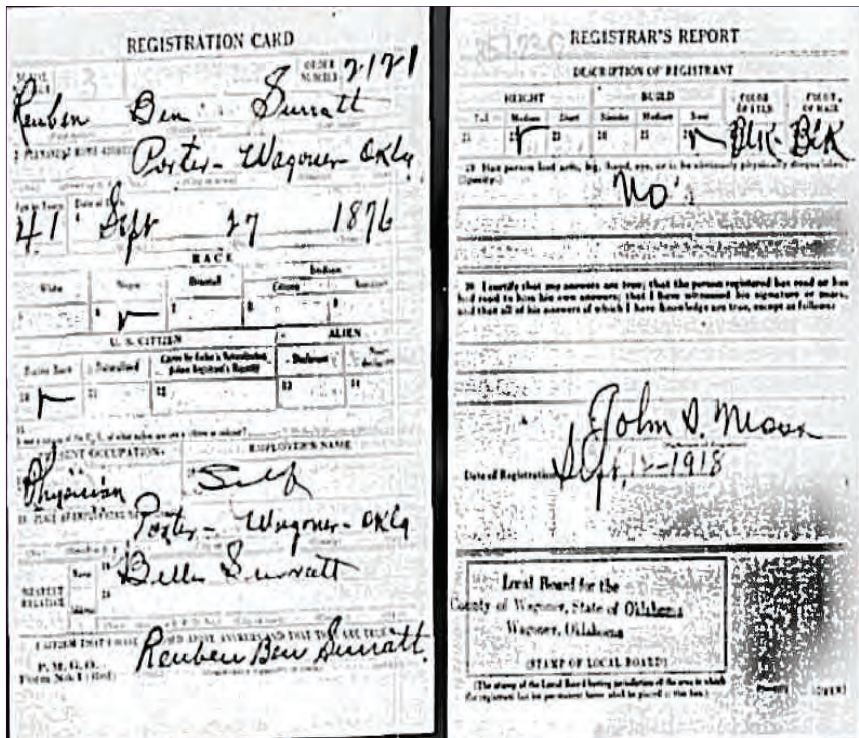 REGISTRATION CARD
SERIAL NUMBER 3 ORDER NUMBER 2121
Reuben Ben Surratt
2 PERMANENT HOME ADDRESS
Porter - Wagoner - Okla
Age in Years Date of Birth
41 Sept 27 1876
RACE
White Negro Oriental Indian
Citizen
5 6 7 8 9
U. S. CITIZEN ALIEN
Native Born Naturalized Declarant
10 11 12 13 14
15
PRESENT OCCUPATION EMPLOYER'S NAME
Physician Self
Porter - Wagoner - Okla
NEAREST RELATIVE Name Bella Surratt
Address
I AFFIRM THAT I HAVE VERIFIED ABOVE ANSWERS AND THAT THEY ARE TRUE
P. M. G. O.
Form No. 1 (Red) Reuben Ben Surratt
REGISTRAR'S REPORT
DESCRIPTION OF REGISTRANT
HEIGHT BUILD COLOR OF EYES COLOR OF HAIR
Tall Medium Short Slender Medium Stout
21 22 23 24 25 26 Blk - Blk
29 Has person lost arm, leg, hand, eye, or is he obviously physically disqualified?
(Specify.)
No
30 I certify that my answers are true; that the person registered has read or has
had read to him his own answers; that I have witnessed his signature or mark,
and that all of his answers of which I have knowledge are true, except as follows:
John S.
Date of Registration Sept, 12 - 1918
Local Board for the
County of Wagoner, State of Oklahoma
Wagoner, Oklahoma
(STAMP OF LOCAL BOARD)
(The stamp of the Local Board having jurisdiction of the area in which
the registrant has his permanent home shall be placed in this box.)
(OVER)